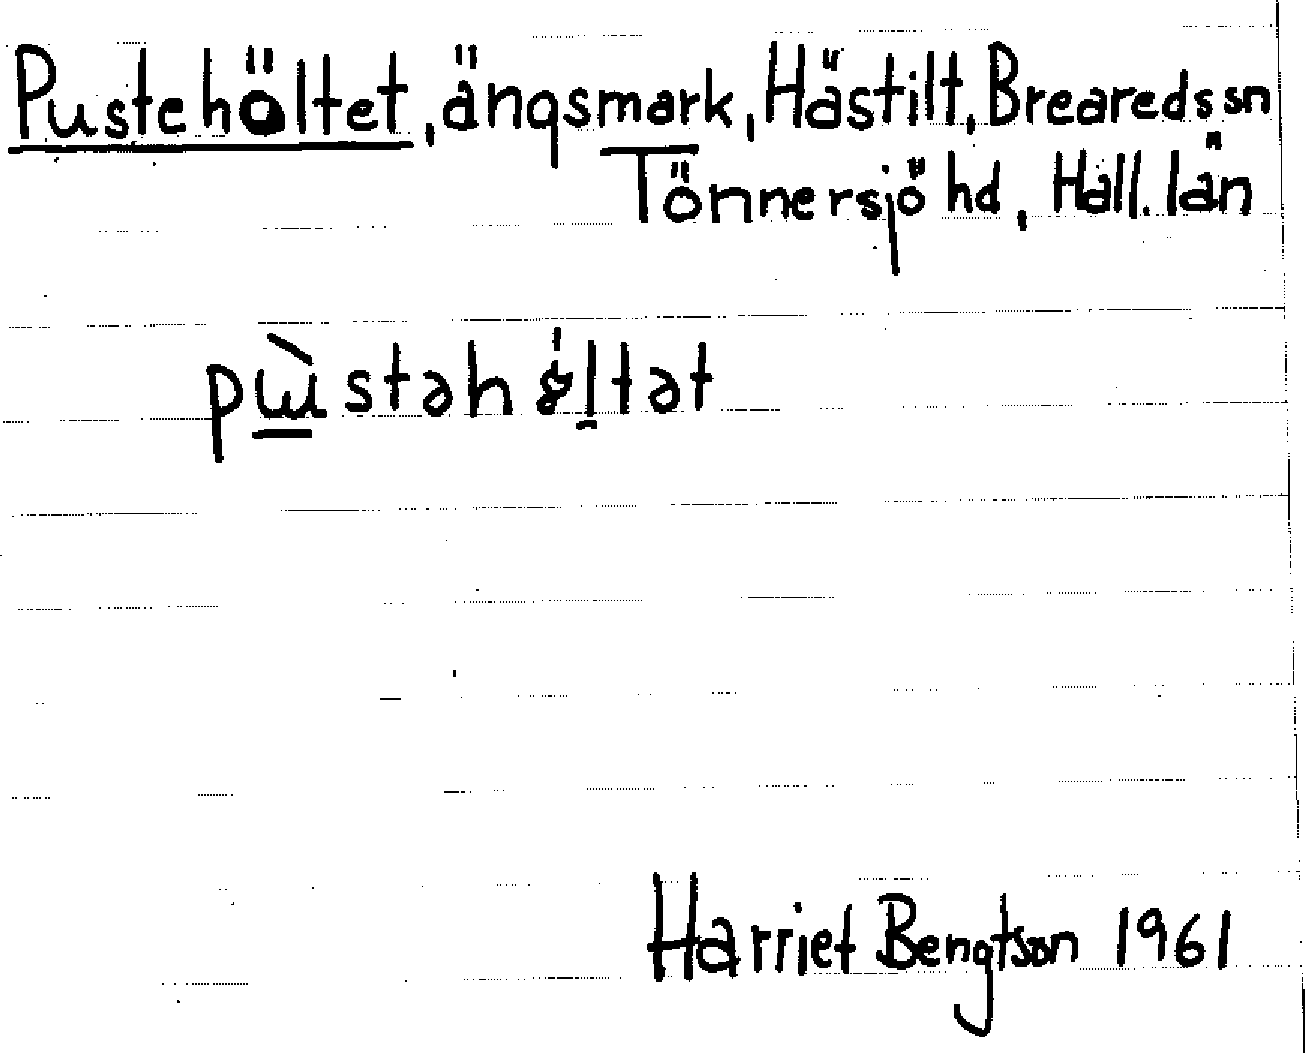 Pustehöltet, ängsmark, Hästilt, Breareds sn
Tönnersjö hd, Hall. län
pɯ̀stəhǿltət
Harriet Bengtson 1961